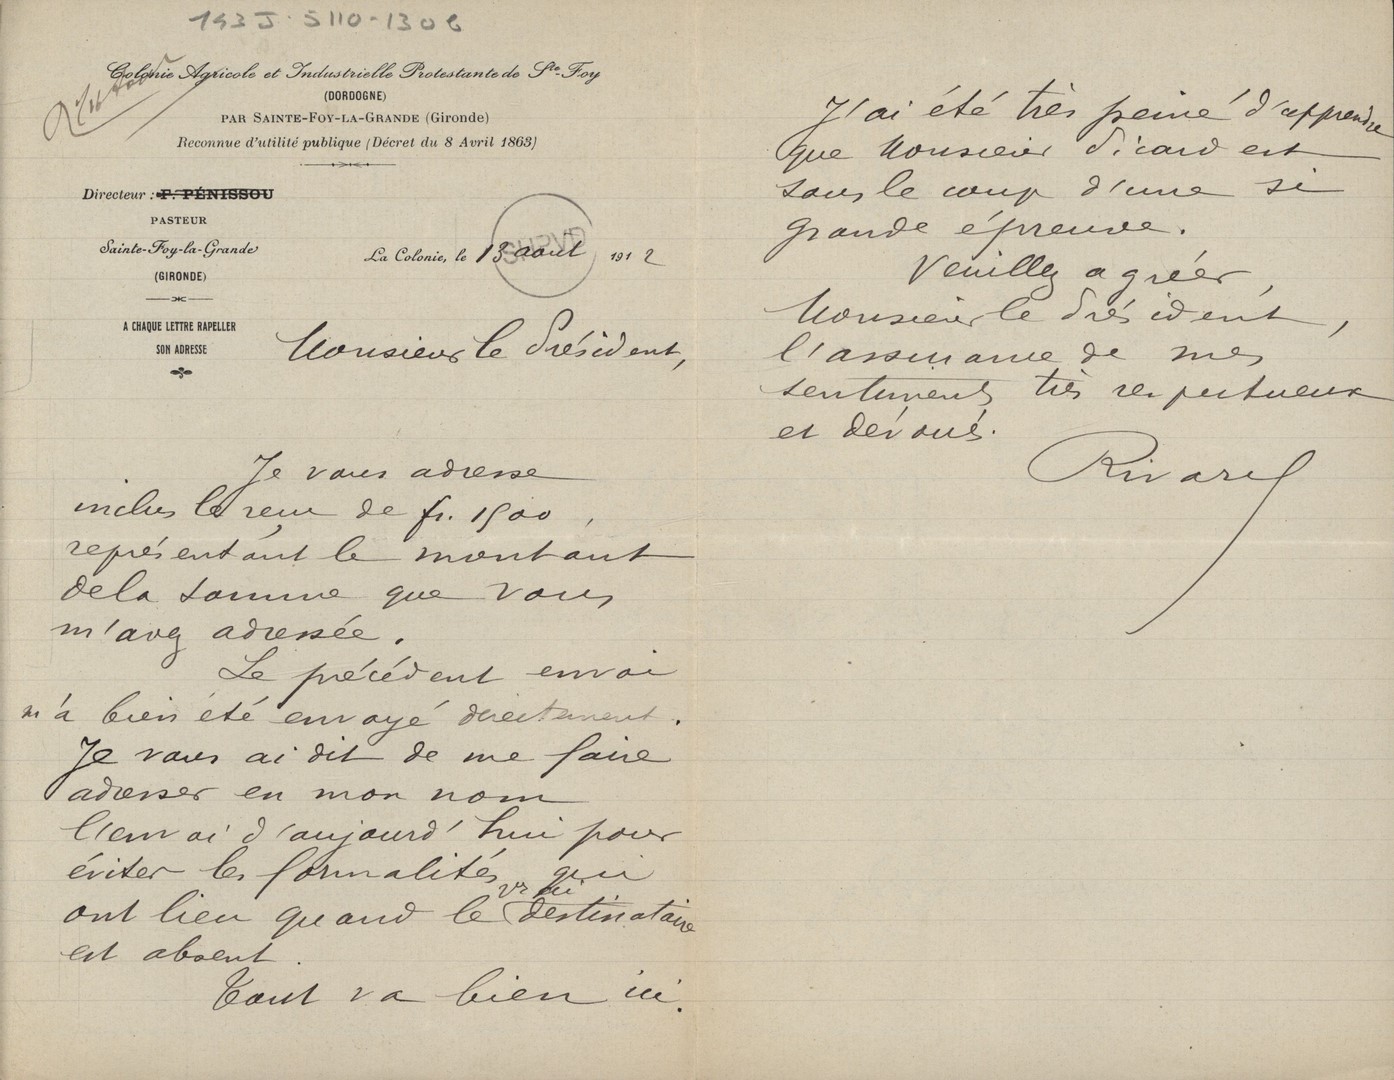 143 J. S110-130 6
Colonie Agricole et Industrielle Protestante de Ste-Foy
(DORDOGNE)
PAR SAINTE-FOY-LA-GRANDE (Gironde)
Reconnue d'utilité publique (Décret du 8 Avril 1863)
Directeur : P. PÉNISSOU
PASTEUR
Sainte-Foy-la-Grande
(GIRONDE)
A CHAQUE LETTRE RAPELLER
SON ADRESSE
La Colonie, le 13 août 1912
Monsieur le Président,
Je vous adresse
inclus le reçu de fr. 1500,
représentant le montant
de la somme que vous
m'avez adressée.
Le précédent envoi
m'a bien été envoyé directement.
Je vous ai dit de me faire
adresser en mon nom
l'envoi d'aujourd'hui pour
éviter les formalités qui
ont lieu quand le vrai destinataire
est absent.
Tout va bien ici.
J'ai été très peiné d'apprendre
que Monsieur Sicard est
sous le coup d'une si
grande épreuve.
Veuillez agréer,
Monsieur le Président,
l'assurance de mes
sentiments très respectueux
et dévoués.
Rivarel